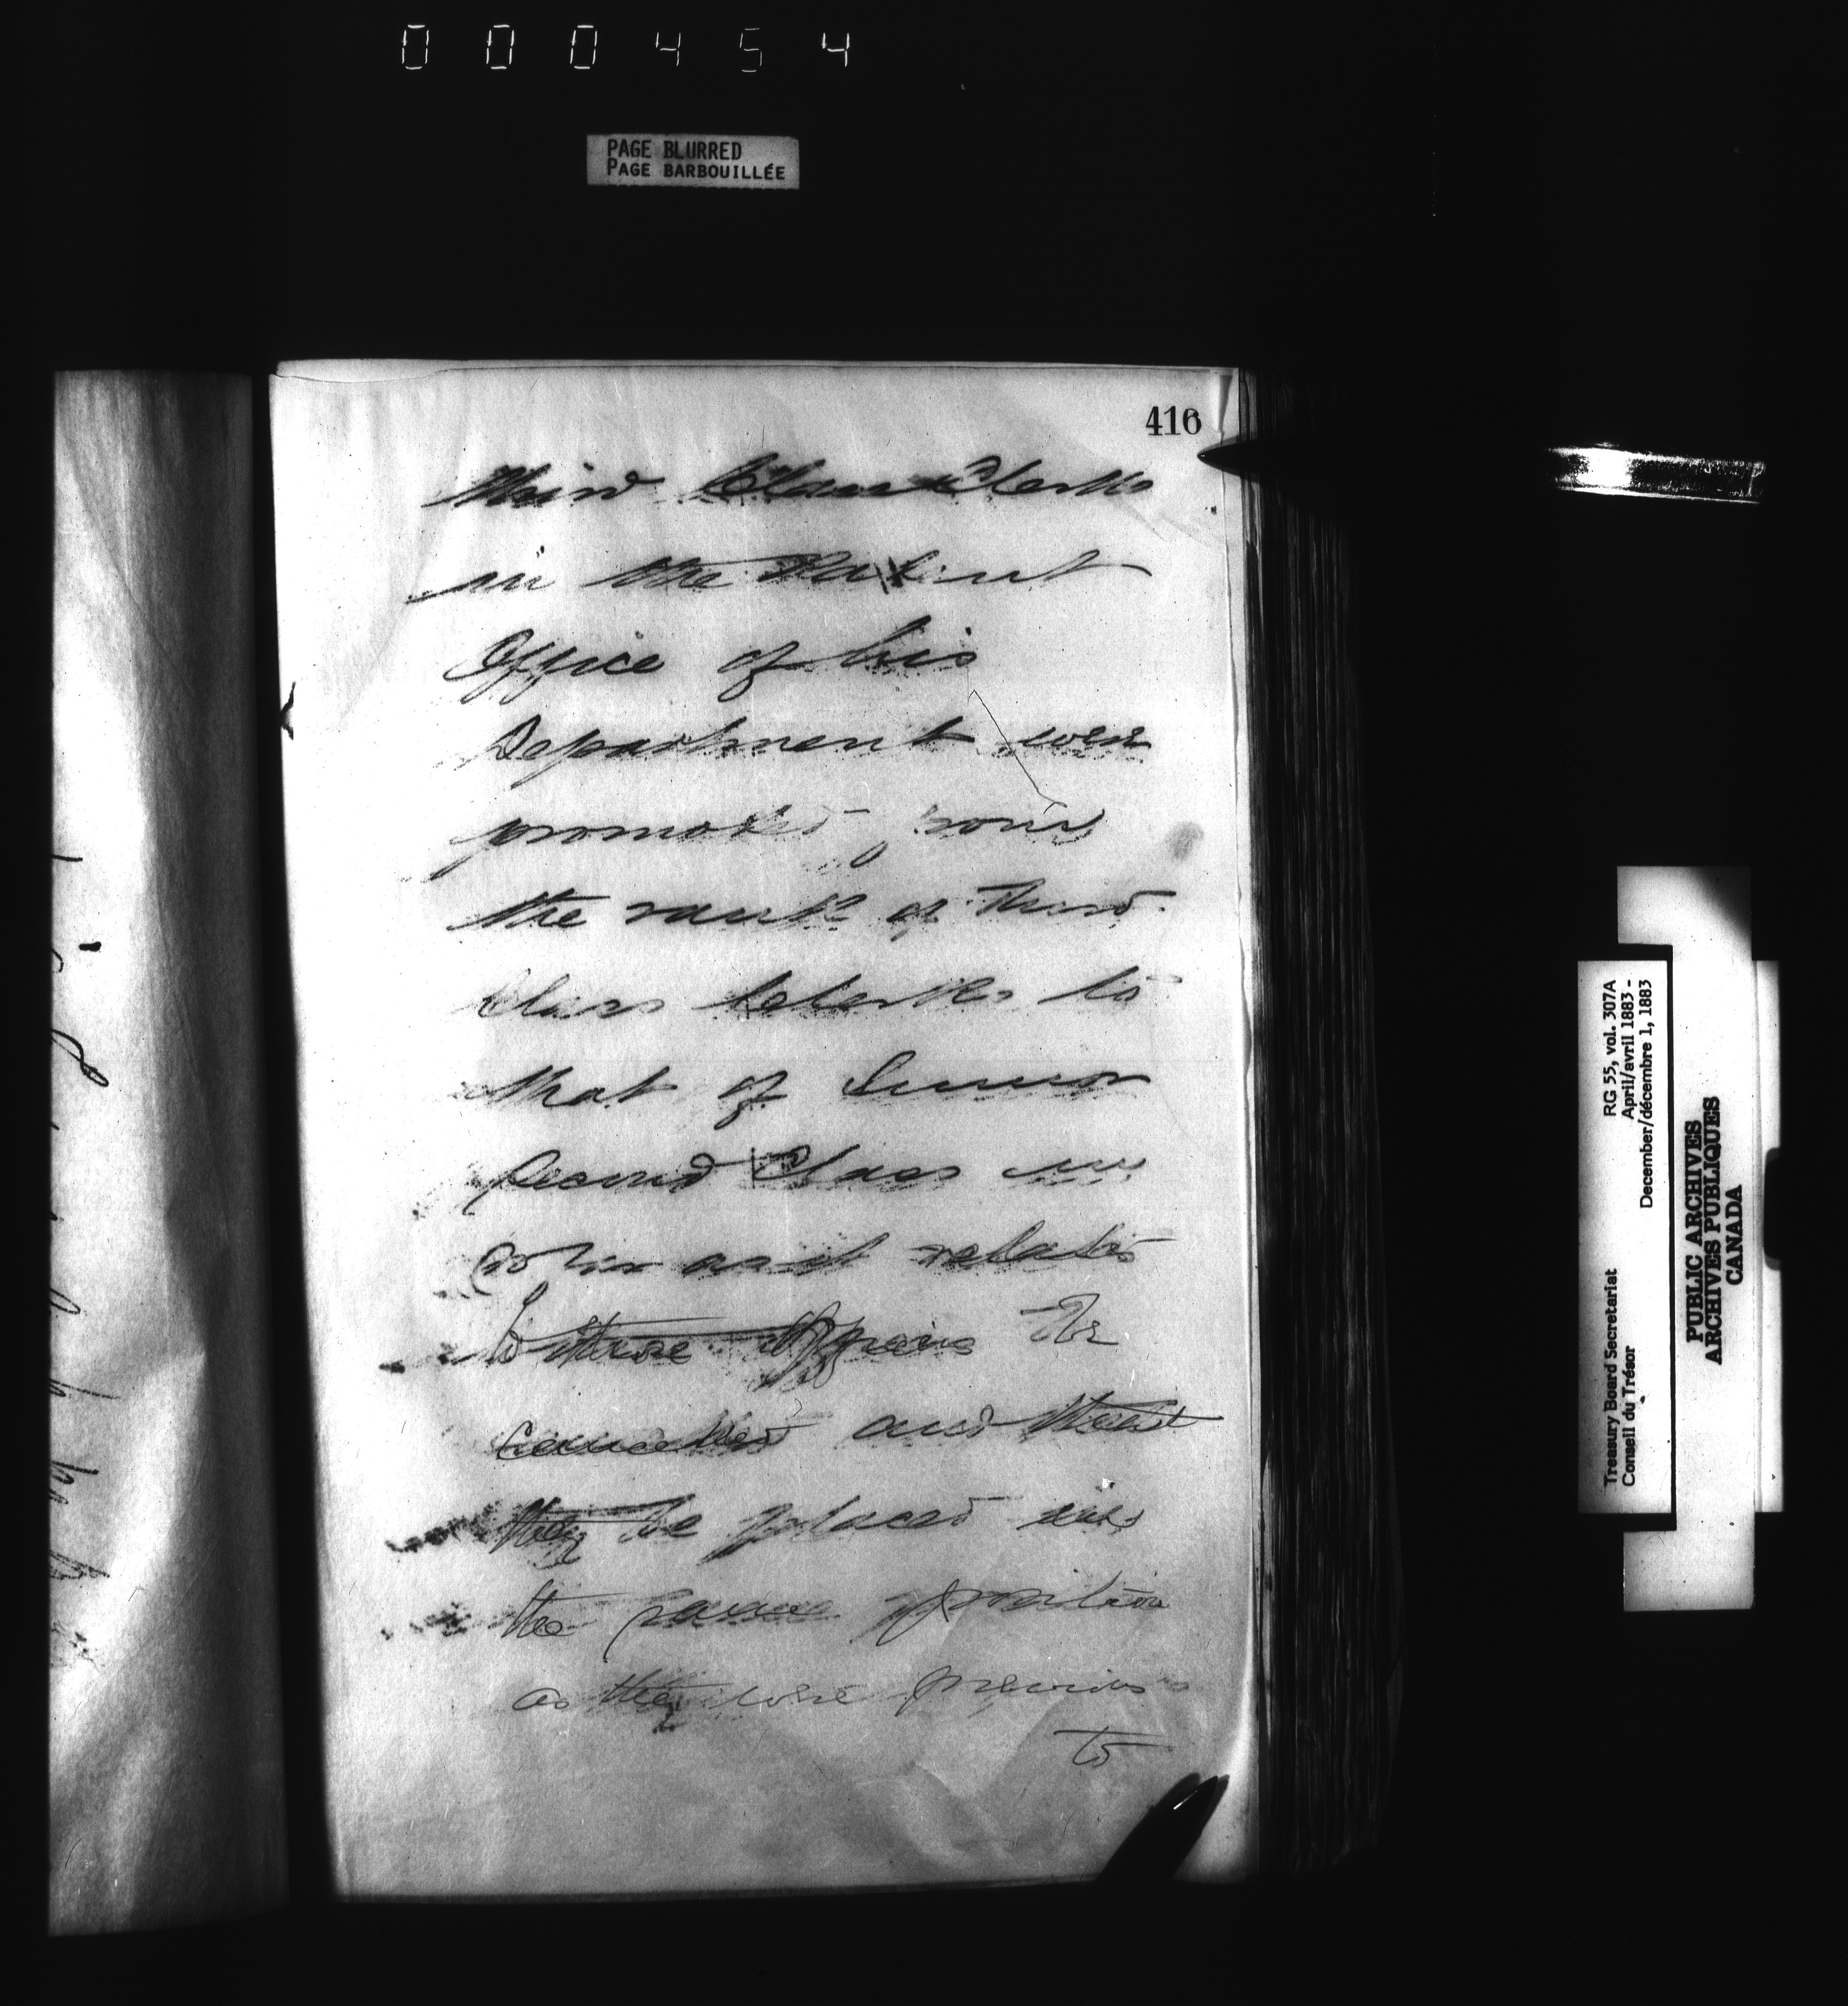 000454
PAGE BLURRED
PAGE BARBOUILLÉE
416
Third Class Clerks
in the Patent
Office of his
Department were
promoted from
the rank of Third
Class Clerks to
that of Junior
Second Class in
so far as it relates
to these Officers be
cancelled and that
they be placed in
the same position
as they were previous
to
RG 55, vol. 307A
April/avril 1883 -
December/décembre 1, 1883
Treasury Board Secretariat
Conseil du Trésor
PUBLIC ARCHIVES
ARCHIVES PUBLIQUES
CANADA